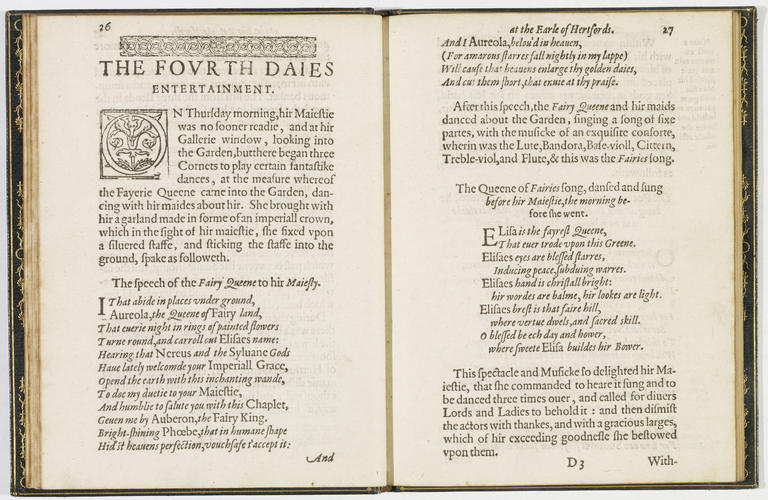 26
THE FOVRTH DAIES
ENTERTAINMENT.
ON Thurſday morning, hir Maieſtie
was no ſooner readie, and at hir
Gallerie window, looking into
the Garden, but there began three
Cornets to play certain fantaſtike
dances, at the meaſure whereof
the Fayerie Queene came into the Garden, dan-
cing with hir maides about hir. She brought with
hir a garland made in forme of an imperiall crown,
which in the ſight of hir maieſtie, ſhe fixed vpon
a ſiluered ſtaffe, and ſticking the ſtaffe into the
ground, ſpake as followeth.
The ſpeech of the Fairy Queene to hir Maieſty.
I That abide in places vnder ground,
Aureola, the Queene of Fairy land,
That euerie night in rings of painted flowers
Turne round, and carroll out Eliſaes name:
Hearing that Nereus and the Syluane Gods
Haue lately welcomde your Imperiall Grace,
Opend the earth with this inchanting wande,
To doe my duetie to your Maieſtie,
And humblie to ſalute you with this Chaplet,
Geuen me by Auberon, the Fairy King.
Bright-ſhining Phœbe, that in humane ſhape
Hid'ſt heauens perfection, vouchſafe t'accept it:
And
at the Earle of Hertfords. 27
And I Aureola, belou'd in heauen,
(For amarous ſtarres fall nightly in my lappe)
Will cauſe that heauens enlarge thy golden daies,
And cut them ſhort, that enuie at thy praiſe.
After this ſpeech, the Fairy Queene and hir maids
danced about the Garden, ſinging a ſong of ſixe
partes, with the muſicke of an exquiſite conſorte,
wherin was the Lute, Bandora, Baſe-violl, Cittern,
Treble-viol, and Flute, & this was the Fairies ſong.
The Queene of Fairies ſong, danſed and ſung
before hir Maieſtie, the morning be-
fore ſhe went.
ELiſa is the fayreſt Queene,
That euer trode vpon this Greene.
Eliſaes eyes are bleſſed ſtarres,
Inducing peace, ſubduing warres.
Eliſaes hand is chriſtall bright:
hir wordes are balme, hir lookes are light.
Eliſaes breſt is that faire hill,
where vertue dwels, and ſacred skill.
O bleſſed be ech day and hower,
where ſweete Eliſa buildes hir Bower.
This ſpectacle and Muſicke ſo delighted hir Ma-
ieſtie, that ſhe commanded to heare it ſung and to
be danced three times ouer, and called for diuers
Lords and Ladies to behold it : and then diſmiſt
the actors with thankes, and with a gracious larges,
which of hir exceeding goodneſſe ſhe beſtowed
vpon them.
D 3 With-